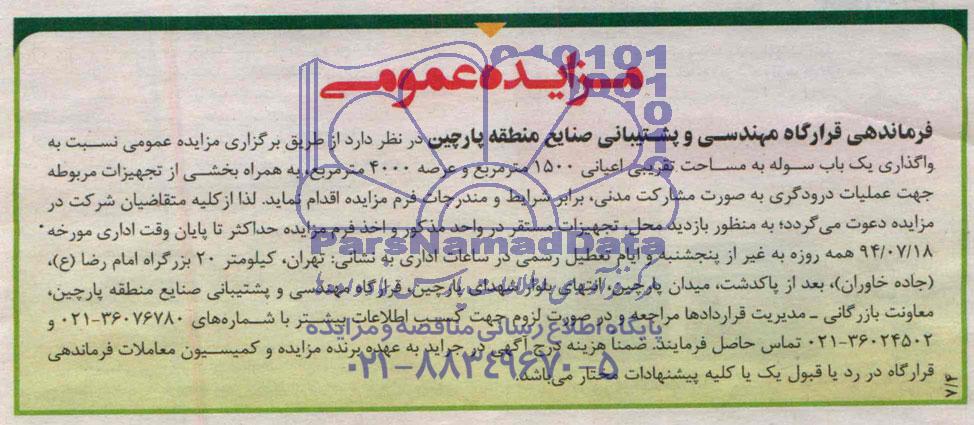 مزایده عمومی
فرماندهی قرارگاه مهندسی و پشتیبانی صنایع منطقه پارچین در نظر دارد از طریق برگزاری مزایده عمومی نسبت به
واگذاری یک باب سوله به مساحت تقریبی اعیانی ۱۵۰۰ مترمربع و عرصه ۴۰۰۰ مترمربع، به همراه بخشی از تجهیزات مربوطه
جهت عملیات درودگری به صورت مشارکت مدنی، برابر شرایط و مندرجات فرم مزایده اقدام نماید. لذا از کلیه متقاضیان شرکت در
مزایده دعوت می‌گردد؛ به منظور بازدید محل، تجهیزات مستقر در واحد مذکور و اخذ فرم مزایده حداکثر تا پایان وقت اداری مورخه
۹۴/۰۷/۱۸ همه روزه به غیر از پنجشنبه و ایام تعطیل رسمی در ساعات اداری به نشانی: تهران، کیلومتر ۲۰ بزرگراه امام رضا (ع)،
(جاده خاوران)، بعد از پاکدشت، میدان پارچین، انتهای بلوار شهدای پارچین، قرارگاه مهندسی و پشتیبانی صنایع منطقه پارچین،
معاونت بازرگانی ـ مدیریت قراردادها مراجعه و در صورت لزوم جهت کسب اطلاعات بیشتر با شماره‌های ۳۶۰۷۶۷۸۰-۰۲۱ و
۳۶۰۲۴۵۰۲-۰۲۱ تماس حاصل فرمایند. ضمنا هزینه درج آگهی در جراید به عهده برنده مزایده و کمیسیون معاملات فرماندهی
قرارگاه در رد یا قبول یک یا کلیه پیشنهادات مختار می‌باشد.
۷/۴
010101
ParsNamadData
پایگاه اطلاع رسانی مناقصه و مزایده
۰۲۱-۸۸۳۴۹۶۷۰-۵